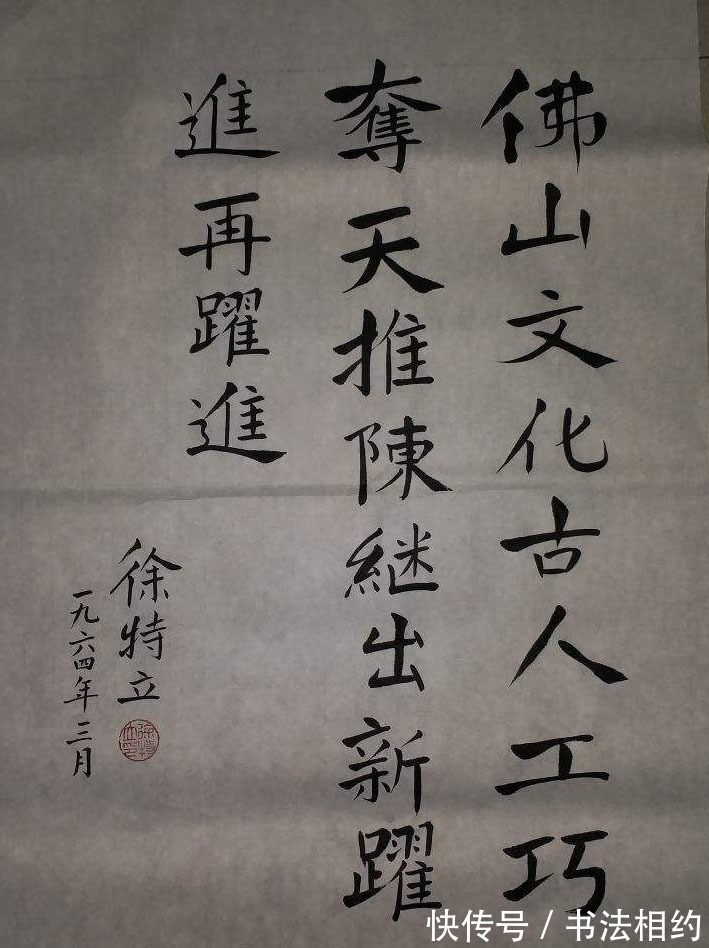 佛山文化古人工巧
奪天推陳継出新躍
進再躍進
徐特立
一九六四年三月
快传号 / 书法相约